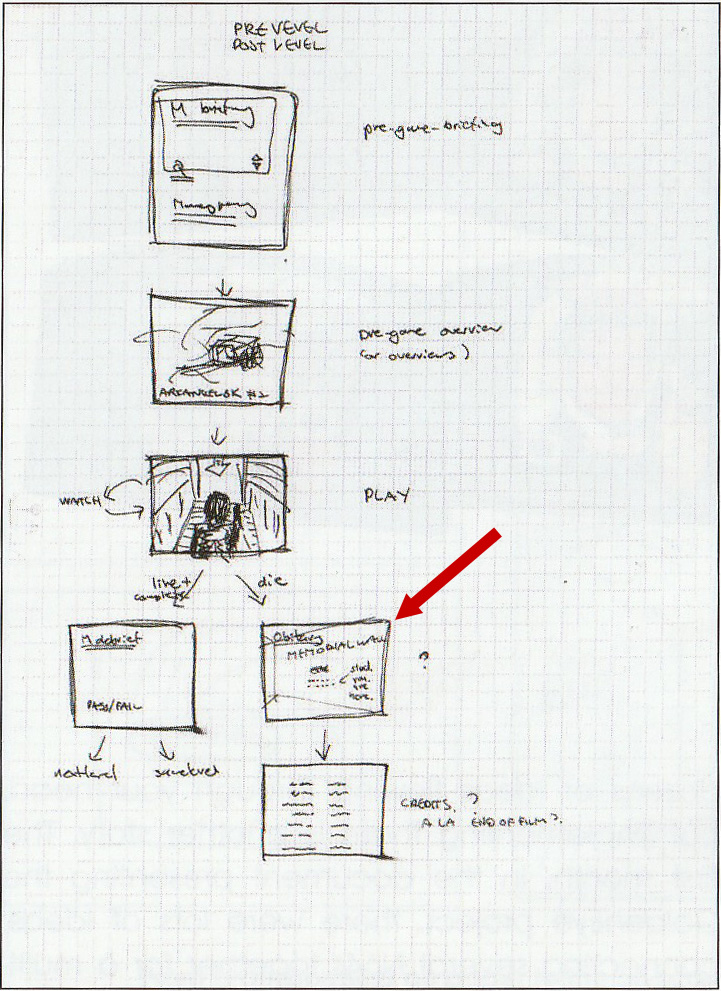 PRE LEVEL
POST LEVEL
M briefing
Q
Moneypenny
pre-game-briefing
pre-game overview
(or overviews)
ARKANGELSK #2
WATCH
PLAY
live +
complete
die
M debrief
PASS/FAIL
Obituary
MEMORIAL WALL
you
are
here.
?
next level
same level
CREDITS. ?
A LA END OF FILM?.